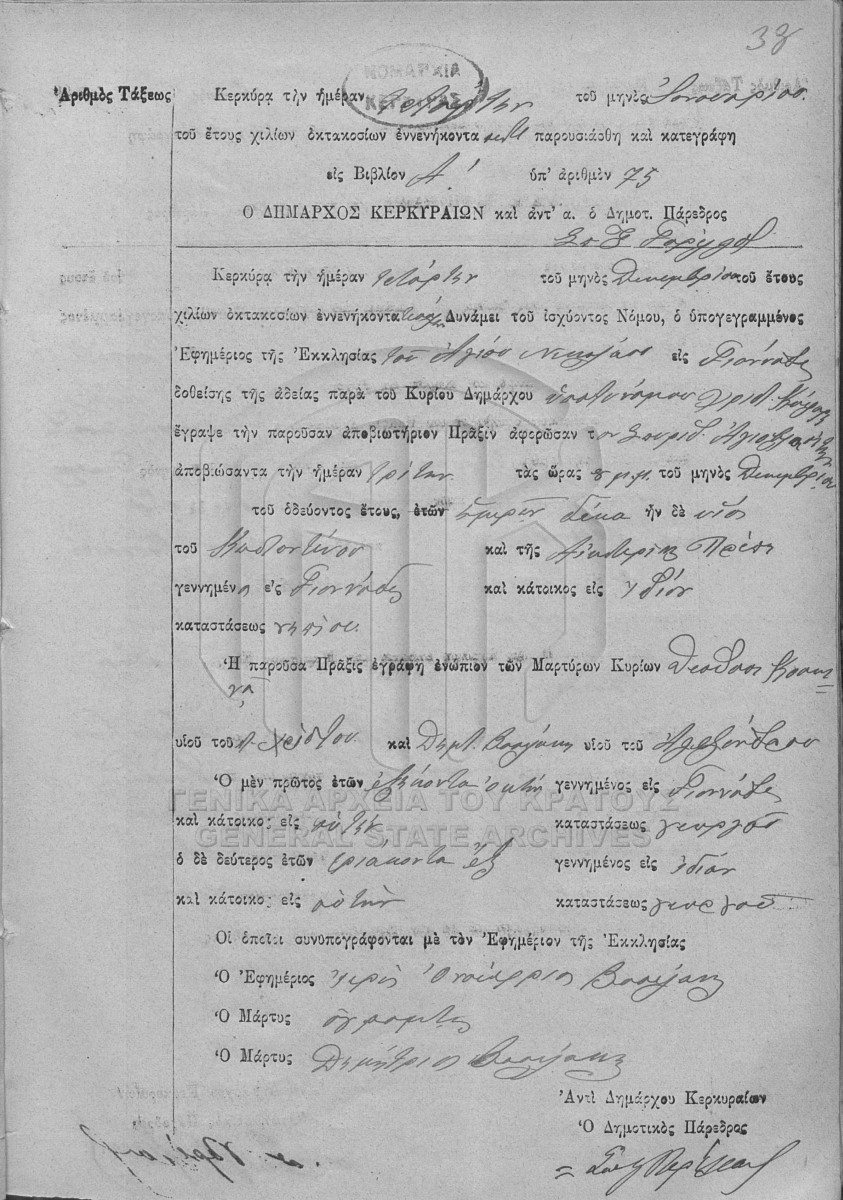 38
Ἀριθμὸς Τάξεως
Κερκύρα τὴν ἡμέραν τετάρτην τοῦ μηνὸς Ἰανουαρίου
τοῦ ἔτους χιλίων ὀκτακοσίων ἐννενήκοντα παρουσιάσθη καὶ κατεγράφη
εἰς Βιβλίον Α! ὑπ' ἀριθμὸν 75
Ο ΔΗΜΑΡΧΟΣ ΚΕΡΚΥΡΑΙΩΝ καὶ ἀντ' α. ὁ Δημοτ. Πάρεδρος
Κερκύρα τὴν ἡμέραν τετάρτην τοῦ μηνὸς Δεκεμβρίου τοῦ ἔτους
χιλίων ὀκτακοσίων ἐννενήκοντα Δυνάμει τοῦ ἰσχύοντος Νόμου, ὁ ὑπογεγραμμένος
Ἐφημέριος τῆς Ἐκκλησίας τοῦ Ἁγίου Νικολάου εἰς Γιαννάδες
δοθείσης τῆς ἀδείας παρὰ τοῦ Κυρίου Δημάρχου ἀστυνόμου
ἔγραψε τὴν παροῦσαν ἀποβιωτήριον Πρᾶξιν ἀφορῶσαν τον Σπυρίδ.
ἀποβιώσαντα τὴν ἡμέραν τρίτην τὰς ὥρας μ.μ. τοῦ μηνὸς Δεκεμβρίου
τοῦ ὁδεύοντος ἔτους, ἐτῶν ἡμερῶν δέκα ἦν δὲ υἱὸς
τοῦ Κωσταντίνου καὶ τῆς Αἰκατερίνης
γεννημένο εἰς Γιαννάδες καὶ κάτοικος εἰς
καταστάσεως νηπίου
Ἡ παροῦσα Πρᾶξις ἐγράφη ἐνώπιον τῶν Μαρτύρων Κυρίων
υἱοῦ τοῦ καὶ Δημ. Βασιλάκη υἱοῦ τοῦ Ἀλεξάνδρου
Ὁ μὲν πρῶτος ἐτῶν ἑξήκοντα ὀκτὼ γεννημένος εἰς Γιαννάδες
ΓΕΝΙΚΑ ΑΡΧΕΙΑ ΤΟΥ ΚΡΑΤΟΥΣ
καὶ κάτοικος εἰς αὐτὴν καταστάσεως γεωργοῦ
GENERAL STATE ARCHIVES
ὁ δὲ δεύτερος ἐτῶν τριάκοντα ἓξ γεννημένος εἰς ἰδίαν
καὶ κάτοικος εἰς αὐτὴν καταστάσεως γεωργοῦ
Οἱ ὁποῖοι συνυπογράφονται μὲ τὸν Ἐφημέριον τῆς Ἐκκλησίας
Ὁ Ἐφημέριος ἱερεὺς Βασιλάκης
Ὁ Μάρτυς ἀγράμματος
Ὁ Μάρτυς Δημήτριος Βασιλάκης
Ἀντὶ Δημάρχου Κερκυραίων
Ὁ Δημοτικὸς Πάρεδρος